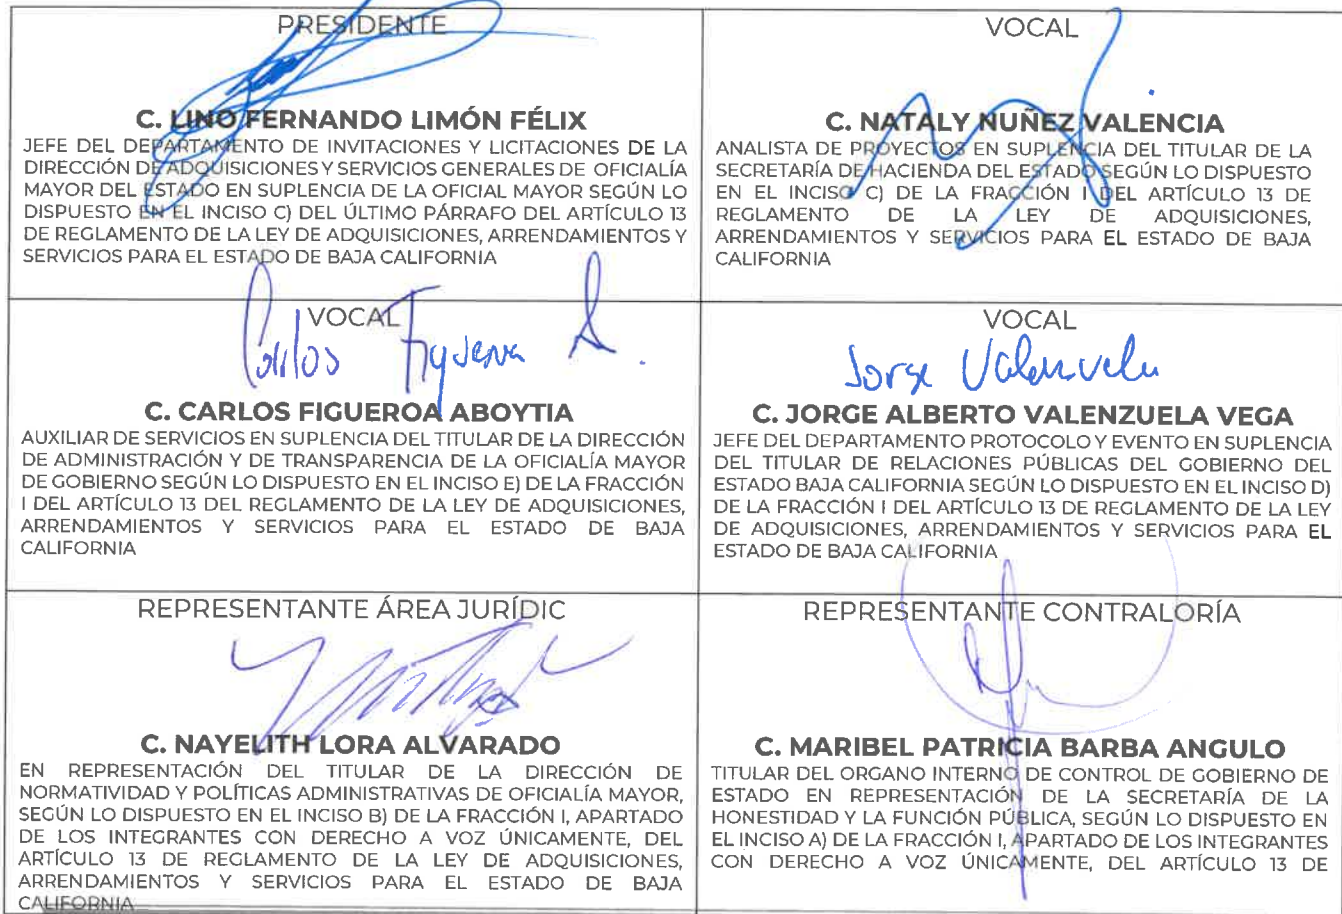 PRESIDENTE
C. LINO FERNANDO LIMÓN FÉLIX
JEFE DEL DEPARTAMENTO DE INVITACIONES Y LICITACIONES DE LA
DIRECCIÓN DE ADQUISICIONES Y SERVICIOS GENERALES DE OFICIALÍA
MAYOR DEL ESTADO EN SUPLENCIA DE LA OFICIAL MAYOR SEGÚN LO
DISPUESTO EN EL INCISO C) DEL ÚLTIMO PÁRRAFO DEL ARTÍCULO 13
DE REGLAMENTO DE LA LEY DE ADQUISICIONES, ARRENDAMIENTOS Y
SERVICIOS PARA EL ESTADO DE BAJA CALIFORNIA
VOCAL
C. NATALY NUÑEZ VALENCIA
ANALISTA DE PROYECTOS EN SUPLENCIA DEL TITULAR DE LA
SECRETARÍA DE HACIENDA DEL ESTADO SEGÚN LO DISPUESTO
EN EL INCISO C) DE LA FRACCIÓN I DEL ARTÍCULO 13 DE
REGLAMENTO DE LA LEY DE ADQUISICIONES,
ARRENDAMIENTOS Y SERVICIOS PARA EL ESTADO DE BAJA
CALIFORNIA
VOCAL
Carlos Figueroa A.
C. CARLOS FIGUEROA ABOYTIA
AUXILIAR DE SERVICIOS EN SUPLENCIA DEL TITULAR DE LA DIRECCIÓN
DE ADMINISTRACIÓN Y DE TRANSPARENCIA DE LA OFICIALÍA MAYOR
DE GOBIERNO SEGÚN LO DISPUESTO EN EL INCISO E) DE LA FRACCIÓN
I DEL ARTÍCULO 13 DEL REGLAMENTO DE LA LEY DE ADQUISICIONES,
ARRENDAMIENTOS Y SERVICIOS PARA EL ESTADO DE BAJA
CALIFORNIA
VOCAL
Jorge Valenzuela
C. JORGE ALBERTO VALENZUELA VEGA
JEFE DEL DEPARTAMENTO PROTOCOLO Y EVENTO EN SUPLENCIA
DEL TITULAR DE RELACIONES PÚBLICAS DEL GOBIERNO DEL
ESTADO BAJA CALIFORNIA SEGÚN LO DISPUESTO EN EL INCISO D)
DE LA FRACCIÓN I DEL ARTÍCULO 13 DE REGLAMENTO DE LA LEY
DE ADQUISICIONES, ARRENDAMIENTOS Y SERVICIOS PARA EL
ESTADO DE BAJA CALIFORNIA
REPRESENTANTE ÁREA JURÍDIC
C. NAYELITH LORA ALVARADO
EN REPRESENTACIÓN DEL TITULAR DE LA DIRECCIÓN DE
NORMATIVIDAD Y POLÍTICAS ADMINISTRATIVAS DE OFICIALÍA MAYOR,
SEGÚN LO DISPUESTO EN EL INCISO B) DE LA FRACCIÓN I, APARTADO
DE LOS INTEGRANTES CON DERECHO A VOZ ÚNICAMENTE, DEL
ARTÍCULO 13 DE REGLAMENTO DE LA LEY DE ADQUISICIONES,
ARRENDAMIENTOS Y SERVICIOS PARA EL ESTADO DE BAJA
CALIFORNIA
REPRESENTANTE CONTRALORÍA
C. MARIBEL PATRICIA BARBA ANGULO
TITULAR DEL ORGANO INTERNO DE CONTROL DE GOBIERNO DE
ESTADO EN REPRESENTACIÓN DE LA SECRETARÍA DE LA
HONESTIDAD Y LA FUNCIÓN PÚBLICA, SEGÚN LO DISPUESTO EN
EL INCISO A) DE LA FRACCIÓN I, APARTADO DE LOS INTEGRANTES
CON DERECHO A VOZ ÚNICAMENTE, DEL ARTÍCULO 13 DE